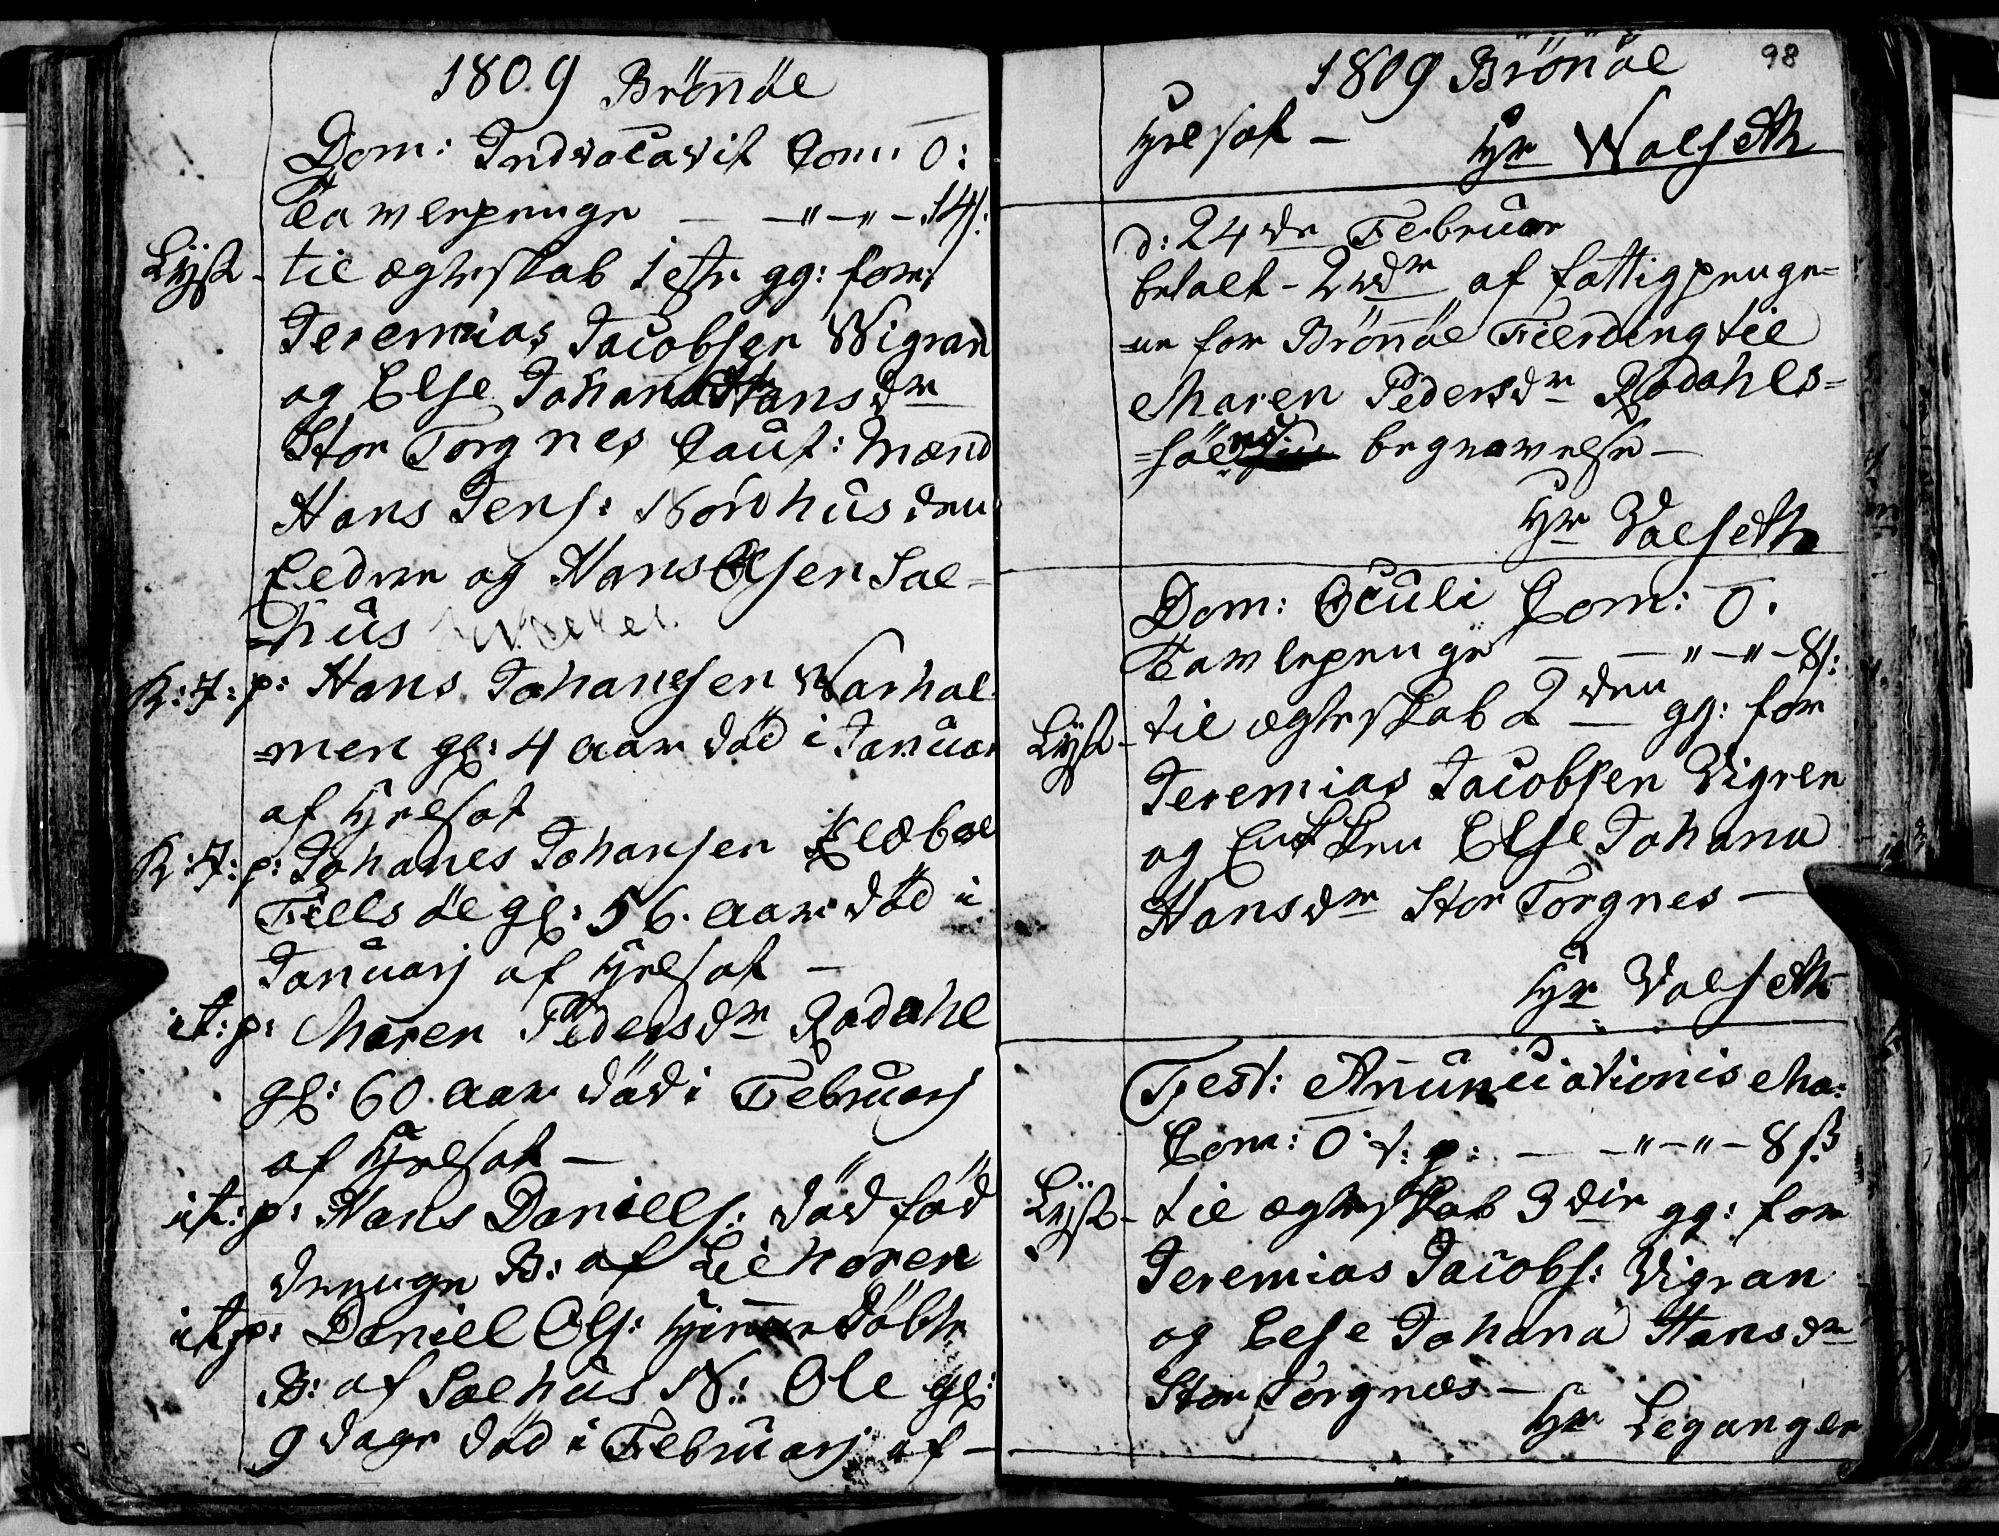 1809 Brönöe
Dom: Invocavit Com: 0:
Tavlepenge — —"—"— 14 s:
Lÿst - til ægteskab 1 este gg: for
Jeremias Jacobsen Wigran
og Else Johana Hansdr
Stor Torgnes Caut: Mænd
Hans Jens: Nordhus den
Eedre og Hans Olsen Sal=
=hus
K: J: p: Hans Johansen Warhol=
=men gl: 4 aar död i Januar
af Hrelsot
K: J: p: Johanes Johansen Klæboe
Tiels öe gl: 56. aar död i
Januarj af Hrelsot —
it: p: Maren Pedersdr Rodahl
gl: 60 aar död i Februarj
af Hrelsot —
it: p: Hans Daniels: död föd
drenge B: af Lihoren
it: p: Daniel Ols: Hjemme döbte
B: af Salhus N: Ole gl:
9 dage död i Februarj af —
1809 Brönöe 98
Hrelsot — Hr Walseth
d: 24 de Februar
betalt - 2 rdr af fattigpenge=
=ne for Brönöe Fierding til
Maren Pedersdr Rodahls=
begravelse —
Hr Valseth
Dom: Oculi Com: 0.
Tavlepenge — —"—"— 8 s:
Lÿst - til ægteskab 2 den gg: for
Jeremias Jacobsen Vigren
og Enkken Else Johana
Hansdr Stor Torgnes —
Hr Valseth
Fest: Anunciationis Ma:
Com: 0. t: p: — —"—"— 8 ß
Lÿst - til ægteskab 3 die gg: for
Jeremias Jacobs: Vigran
og Else Johana Hansdr
Stor Torgnæs —
Hr Leganger